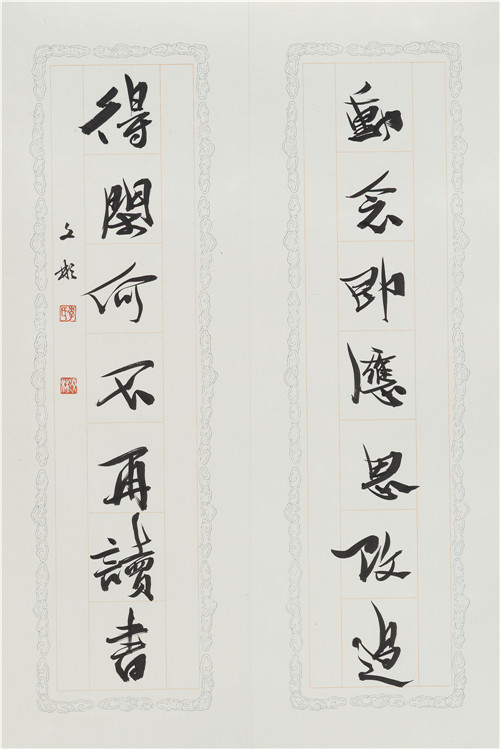 動念即應思改過
得閑何不再讀書